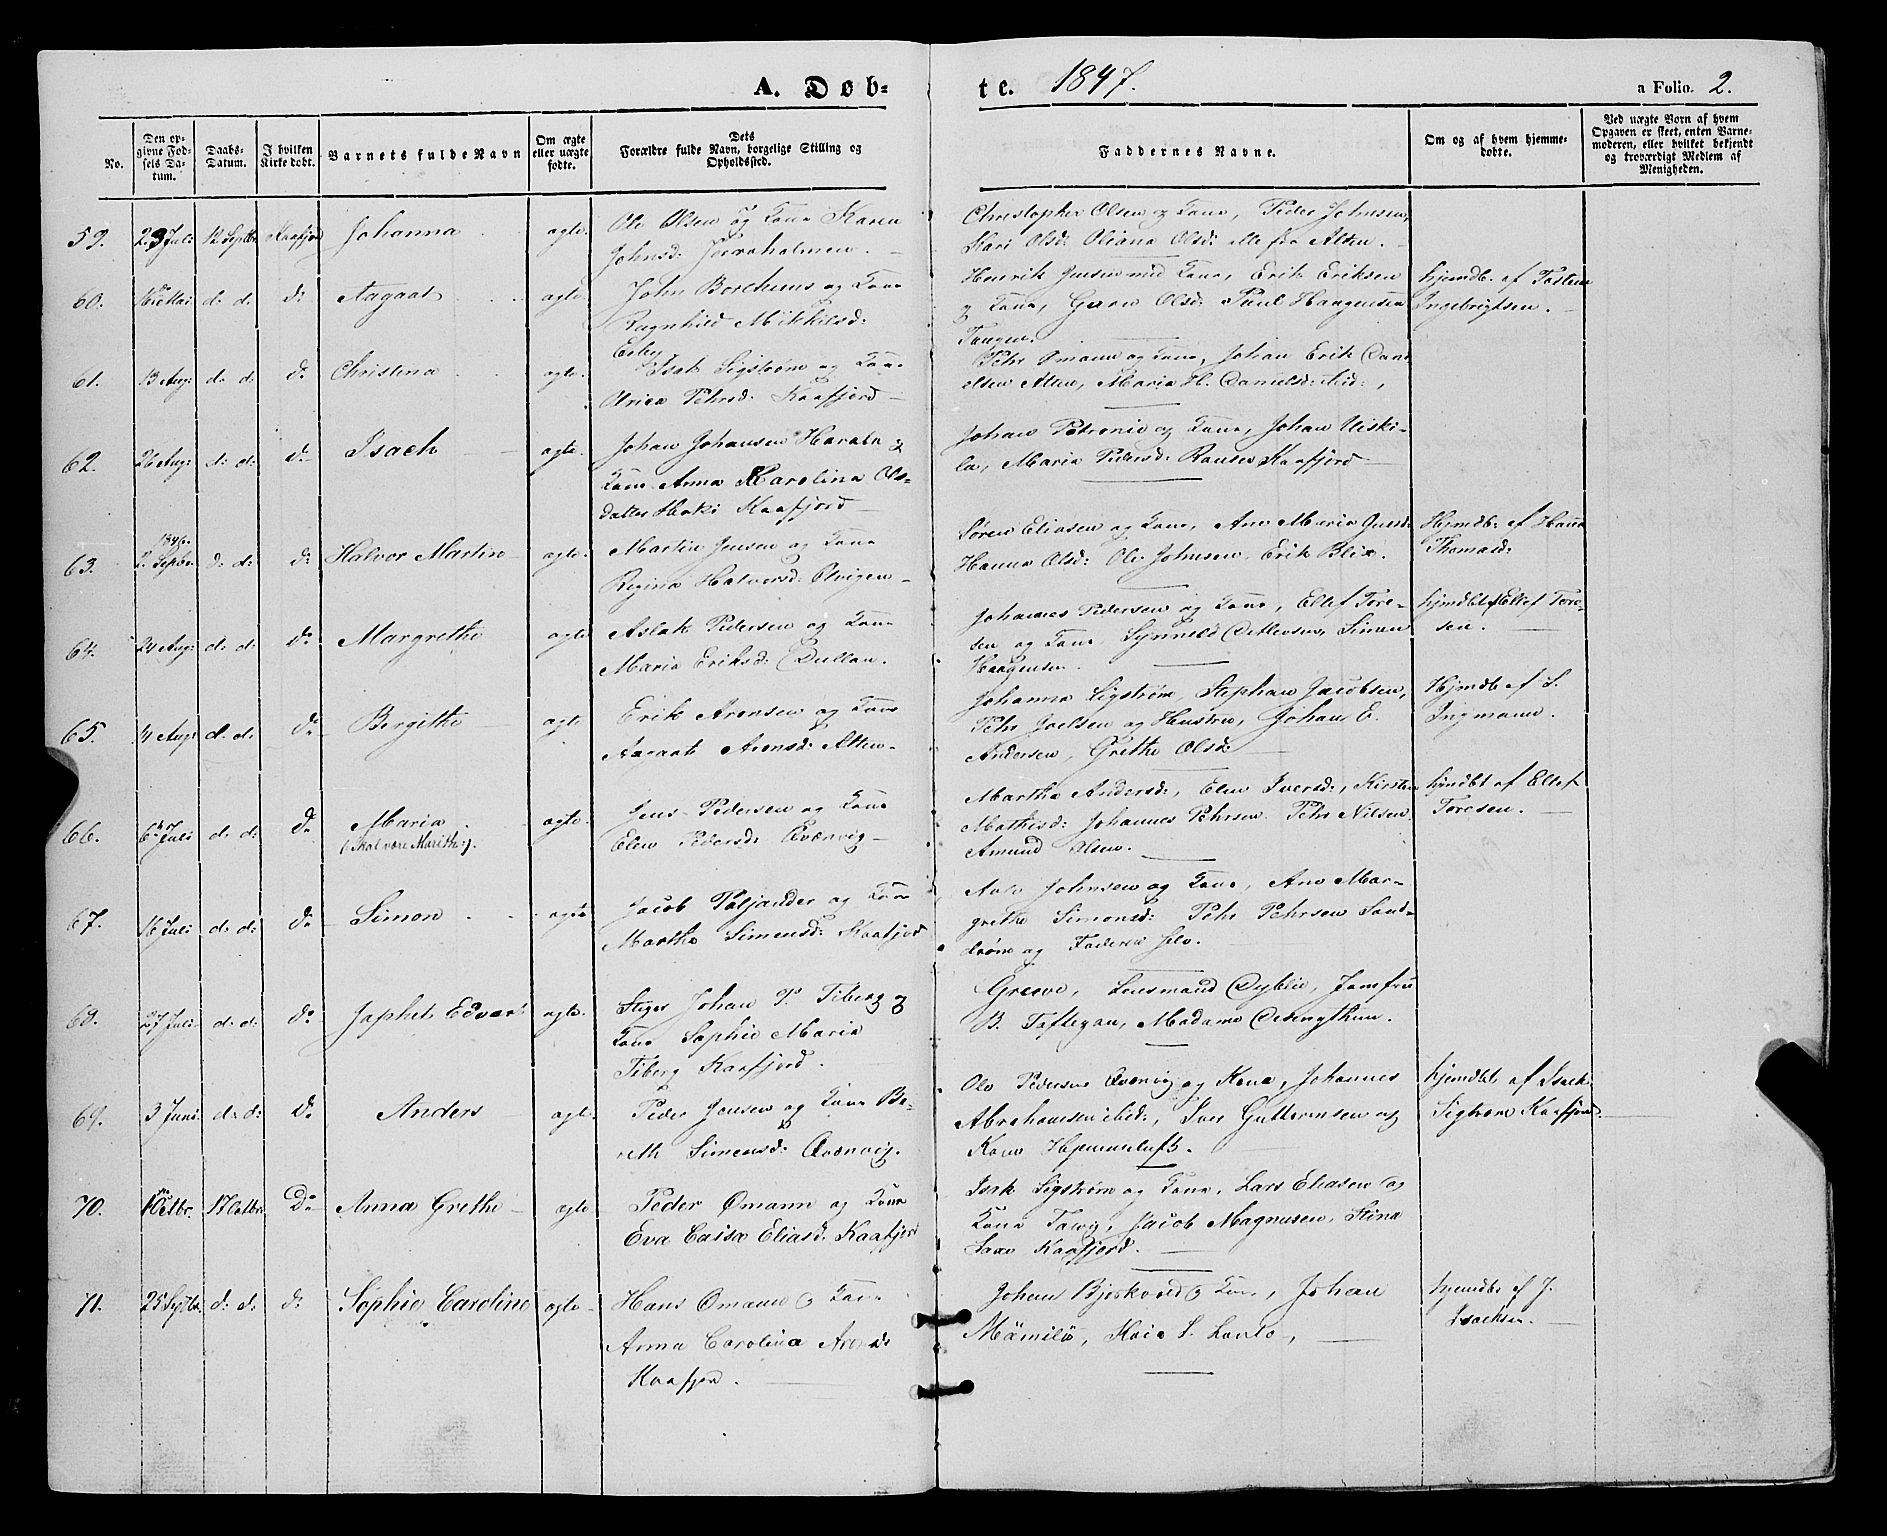 A. Døb-
te. 1847.
a Folio. 2.
No.
Den op-
givne Fød-
sels Da-
tum.
Daabs-
Datum.
I hvilken
Kirke døbt.
Barnets fulde Navn
Om ægte
eller uægte
fødte.
Dets
Forældre fulde Navn, borgelige Stilling og
Opholdssted.
Faddernes Navne.
Om og af hvem hjemme-
døbte.
Ved uægte Børn af hvem
Opgaven er skeet, enten Barne-
moderen, eller hvilket bekjendt
og troværdigt Medlem af
Menigheden.
59. 23 Juli 12 Septbr Kaafjord Johanna ægte. Ole Olsen og Kone Karen
Johnsd:
Christopher Olsen og Kone, Peder Johnsen,
Kari Olsd: Oliana Olsd: alle fra Alten.
60. 16de Mai d: d: d: Aagaat ægte. John Borchenes og Kone
Ragnhild Mikkelsd:
Henrik Jensen med Kone, Erik Eriksen
og Kone, Olsd: Paul Haagensen
Tangen.
hjemdbt. af Tosten
Ingebrigtsen.
61. 13 Aug: d: d: d: Christina ægte. Isak Sigstrøm og Kone
Ulrica Pehrsd: Kaafjord
Pehr Omann og Kone, Johan Erik Dani
elsen Alten, Maria H. Danielsd: ibid:,
62. 26 Aug: d: d: d: Isach ægte. Johan Johansen Harala og
Kone Anna Karolina Ols-
datter Kaafjord
Johan Petronie og Kone, Johan Niski-
la, Maria Pedersd: Kaafjord
63. 1846. 2 Septbr. d: d: d: Halvor Martin ægte. Martin Jensen og Kone
Regina Halvorsd:
Søren Eliasen og Kone, Ane Maria
Hanna Olsd: Ole Johnsen, Erik Blix.
Hjemdbt. af Hanna
Thomasd:
64. 24 Aug: d: d: do Margrethe ægte Aslak Pedersen og Kone
Maria Eriksd:
Johannes Pedersen og Kone, Ellef Tore-
sen og Kone, Simen
Haagensen.
hjemdbt af Ellef Tore-
sen.
65. 4 Aug: d: d: do Borgithe ægte Erik Aronsen og Kone
Aagaat Aronsd: Alten
Johanna Sigstrøm, Stephan Jacobsen,
Pehr Joelsen og Hustru, Johan E.
Andersen, Grethe Olsd:
Hjemdbt af S.
Ingmann.
66. 6 Juli d: d: do Maria
(skal være Marithe). ægte. Jens Pedersen og Kone
Elen Pedersd: Qvænvig
Martha Andersd:, Elen Iversd:, Kirsten
Mathisd: Johannes Pehrsen Pehr Nilsen
Amund Olsen.
hjemdbt af Ellef
Toresen.
67. 16 Juli d: d: do Simon ægte Jacob Paljander og Kone
Martha Simensd: Kaafjord
Johnsen og Kone, Ane Mar-
grethe Simonsd: Pehr Pehrsen Sand-
strøm og Faderen selv.
68. 27 Juli d: d: do Japhet Edvart ægte. Stiger Johan P. Tiberg og
Kone Sophie Maria
Tiberg Kaafjord.
Greeve, Lensmand Jomfru
B. Madame
69. 3 Juni d: d: do Anders ægte. Peder Jensen og Kone Be-
reth Simensd: Qvænvig.
Ole Pedersen Qvænvig og Kone, Johannes
Abrahamsen ibid:, Iver Guttormsen og
Kone
hjemdbt af Isack
Sigtrøm Kaafjord.
70. 1 Octbr. 17 Octbr. Do Anna Grethe ægte Peder Omann og Kone
Eva Caisa Eliasd: Kaafjord
Isak Sigstrøm og Kone, Lars Eliasen og
Kone Jacob Magnusen, Stina
Kaafjord.
71. 25 Septbr. d: d: d: Sophie Caroline ægte Hans Omann og Kone
Anna Carolina Aronsd:
Kaafjord.
Johan og Kone, Johan
hjemdbt af J.
Isaksen.